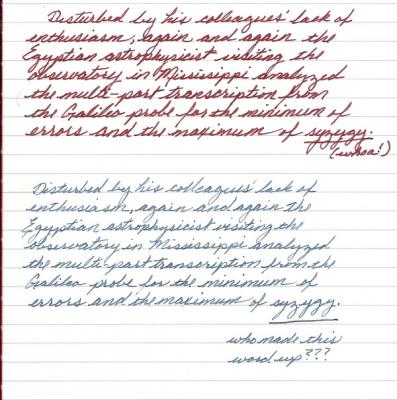 Disturbed by his colleagues' lack of
enthusiasm, again and again the
Egyptian astrophysicist visiting the
observatory in Mississippi analyzed
the multi-part transcription from
the Galileo probe for the minimum of
errors and the maximum of syzygy.
(whoa!)
Disturbed by his colleagues' lack of
enthusiasm, again and again the
Egyptian astrophysicist visiting the
observatory in Mississippi analyzed
the multi-part transcription from the
Galileo probe for the minimum of
errors and the maximum of syzygy.
who made this
word up???